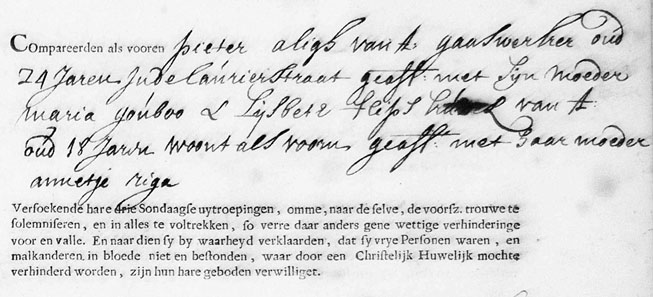 Compareerden als vooren pieter aligh van A. gaaswerker oud
24 Jaren Jnde laúrierstraat geasst: met Sijn moeder
maria goúboo & Lijsbet flips van A:
oúd 18 Jaren woont als vooren geasst: met haar moeder
annetje riga
Versoekende hare drie Sondaagse uytroepingen, omme, naar de selve, de voorsz. trouwe te
solemniseren, en in alles te voltrekken, so verre daar anders gene wettige verhinderinge
voor en valle. En naar dien sy by waarheyd verklaarden, dat sy vrye Personen waren, en
malkanderen in bloede niet en bestonden, waar door een Christelijk Huwelijk mochte
verhinderd worden, zijn hun hare geboden verwilliget.